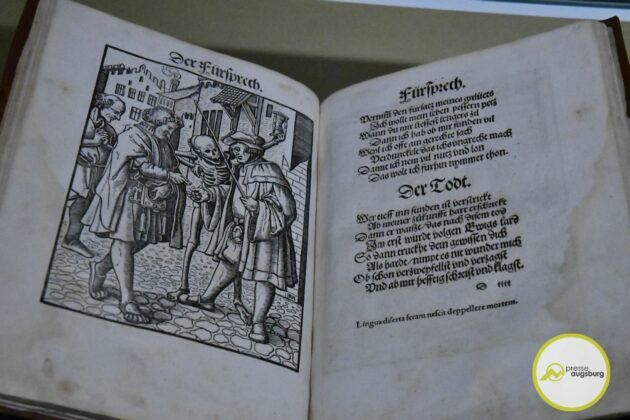 Der Fürsprech.
Fürsprech.
Vernum den fürsatz meines gmüets
Ich wolt mein leben pessern yetz
Wann du mir stelest lengers zil
Dann ich hab ob mir sünden vil
Weyl ich offt ain gerechte sach
Verdunckelt das ichs vngrecht mach
Damit ich nem vil nutz vnd lon
Das wolt ich fürhin nymmer thon.
Der Todt.
Wer tieff inn sünden ist verstrickt
Ab meiner zükunfft hart erschrickt
Dann er waißt/das nach disem tod
Im erst würdt volgen Ewigs laid
So dann truckht dein gewissen dich
Als hardt/nimpt es nie wunder mich
Ob schon verzweyfelst vnd verzagst
Vnd ab mir hefftig schreist vnd klagst.
D iiij
Lingua diserta feram nescit deppellere mortem.
presse
augsburg